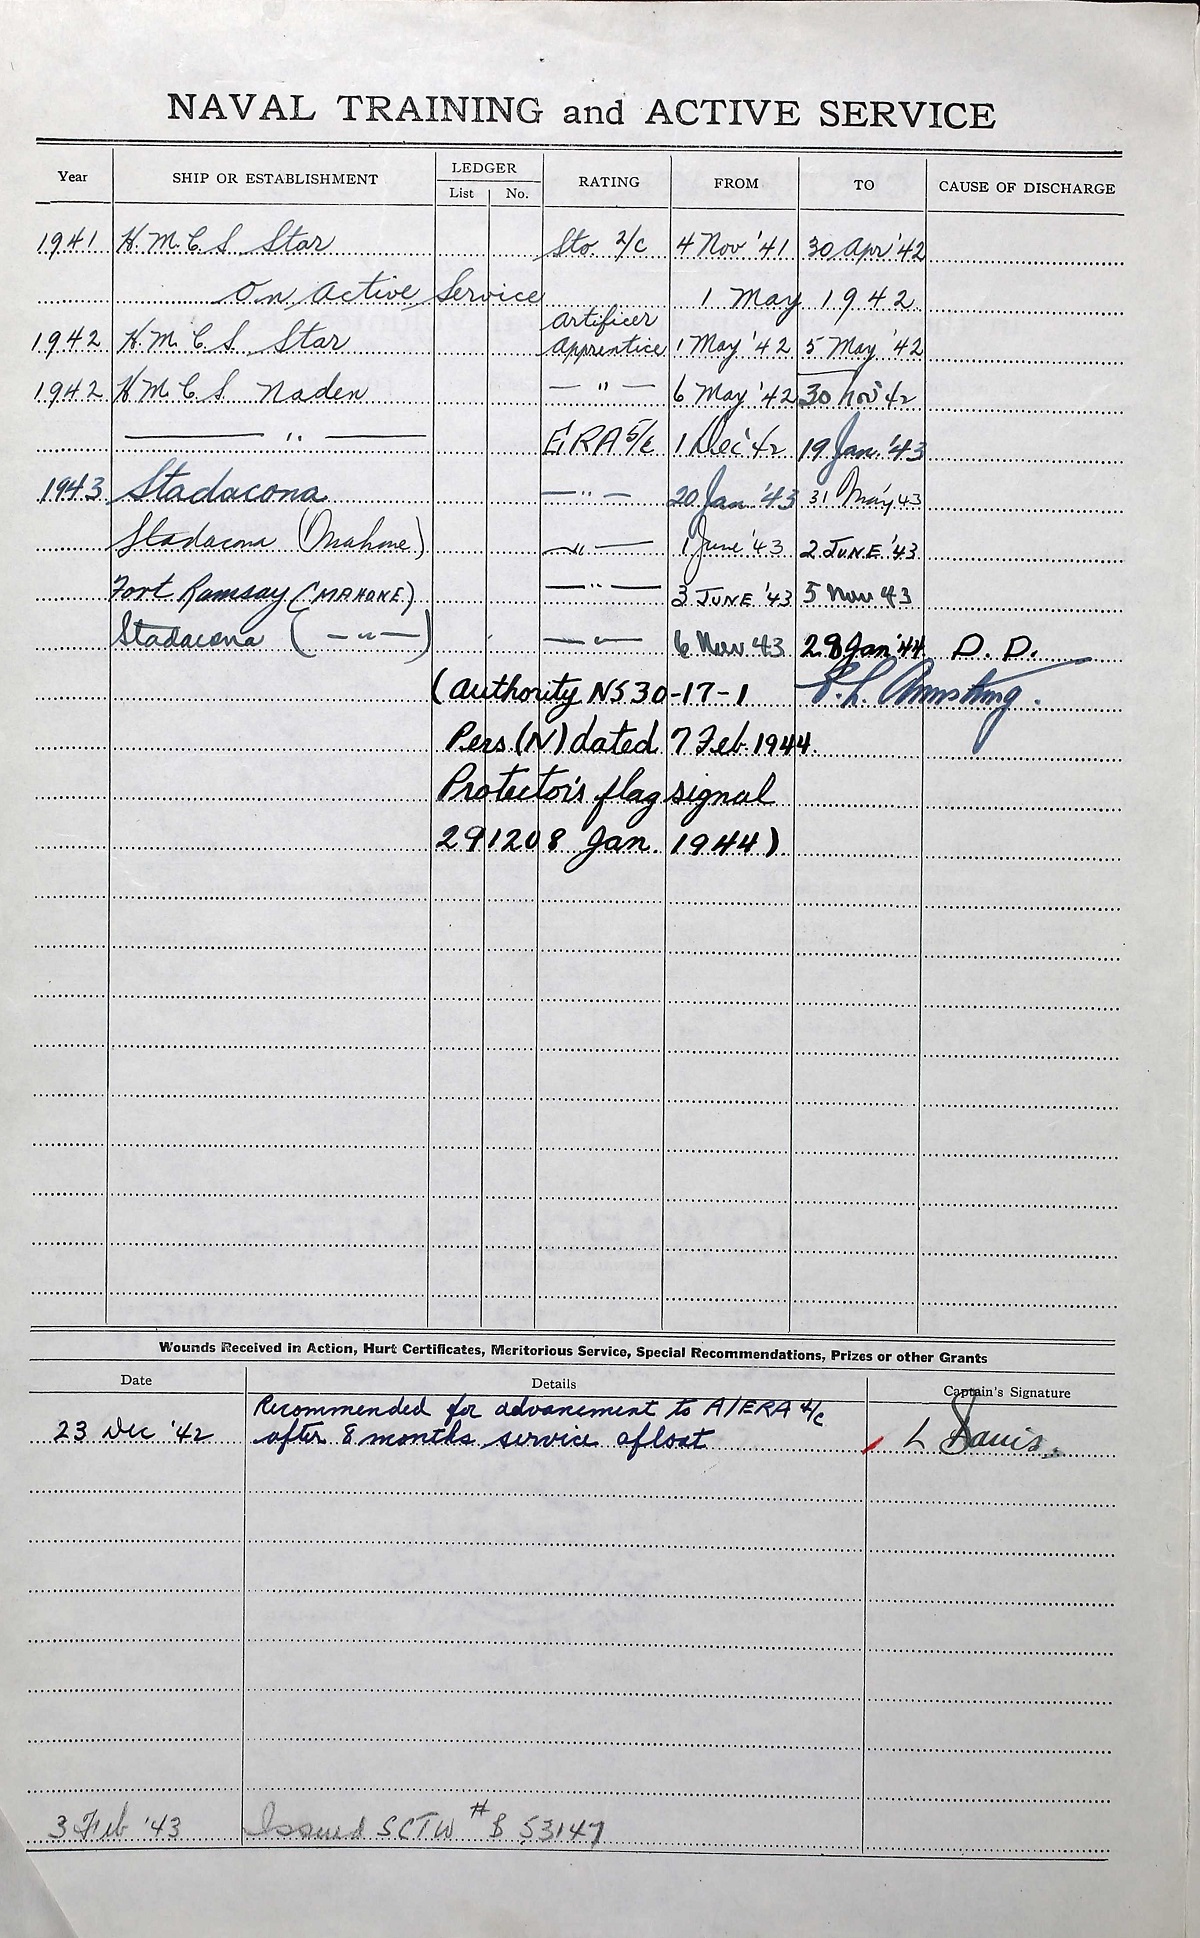 NAVAL TRAINING and ACTIVE SERVICE
Year SHIP OR ESTABLISHMENT LEDGER List No. RATING FROM TO CAUSE OF DISCHARGE
1941 H.M.C.S. Star Sto. 2/c 4 Nov '41 30 Apr '42
On Active Service 1 May 1942
1942 H.M.C.S. Star Artificer Apprentice 1 May '42 5 May '42
1942 H.M.C.S. Naden — " — 6 May '42 30 Nov '42
— " — ERA 5/c 1 Dec '42 19 Jan '43
1943 Stadacona — " — 20 Jan '43 31 May '43
Stadacona (Mahone) — " — 1 June '43 2 JUNE '43
Fort Ramsay (MAHONE) — " — 3 JUNE '43 5 Nov 43
Stadacona ( — " — ) — " — 6 Nov 43 28 Jan '44 D. D.
(Authority NS 30-17-1 P.L. Armstrong.
Pers (N) dated 7 Feb 1944.
Protector's flag signal
291208 Jan. 1944)
Wounds Received in Action, Hurt Certificates, Meritorious Service, Special Recommendations, Prizes or other Grants
Date Details Captain's Signature
Recommended for advancement to A/ERA 4/c
23 Dec '42 after 8 months service afloat L Davis
3 Feb '43 Issued SCTW # B 53147